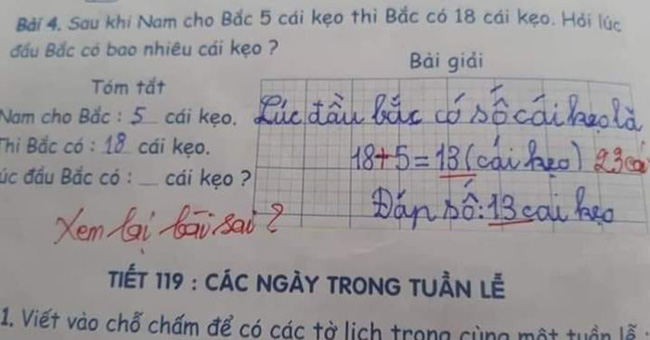 Bài 4. Sau khi Nam cho Bắc 5 cái kẹo thì Bắc có 18 cái kẹo. Hỏi lúc
đầu Bắc có bao nhiêu cái kẹo ?
Bài giải
Tóm tắt
Nam cho Bắc : 5 cái kẹo.
Lúc đầu bắc có số cái kẹo là
Thì Bắc có : 18 cái kẹo.
18+5=13 (cái kẹo) 23 cá
úc đầu Bắc có : __ cái kẹo ?
Đáp số: 13 cái kẹo
Xem lại bài sai ?
TIẾT 119 : CÁC NGÀY TRONG TUẦN LỄ
1. Viết vào chỗ chấm để có các tờ lịch trong cùng một tuần lễ :